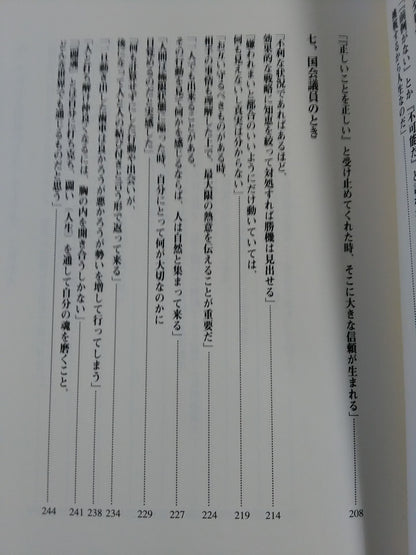 「正しいことを正しい」と受け止めてくれた時、そこに大きな信頼が生まれる」 208
七、国会議員のとき
「不利な状況であればあるほど、
効果的な戦略に知恵を絞って対処すれば勝機は見出せる」 214
「嫌われまいと都合のいいようにだけ動いていては、
何も見えないし真実は分からない」 219
「お互い守るべきものがある時、
相手の事情も理解した上で、最大限の熱意を伝えることが重要だ」 224
「一人でも出来ることがある。
その行動を見て何かを感じるならば、人は自然と集まって来る」 227
「人間は極限状態に陥った時、自分にとって何が大切なのかに
目覚めるのだと実感した」 229
後になって人と人との結び付きと言う形で返って来る」 234
「一旦動き出した歯車は良かろうが悪かろうが勢いを増して行ってしまう」 238
人と打ち解け仲良くなるには、胸の内を開き合うしかない」 241
通して自分の魂を磨くこと、
どんな世界でも通じるものだと思う」 244